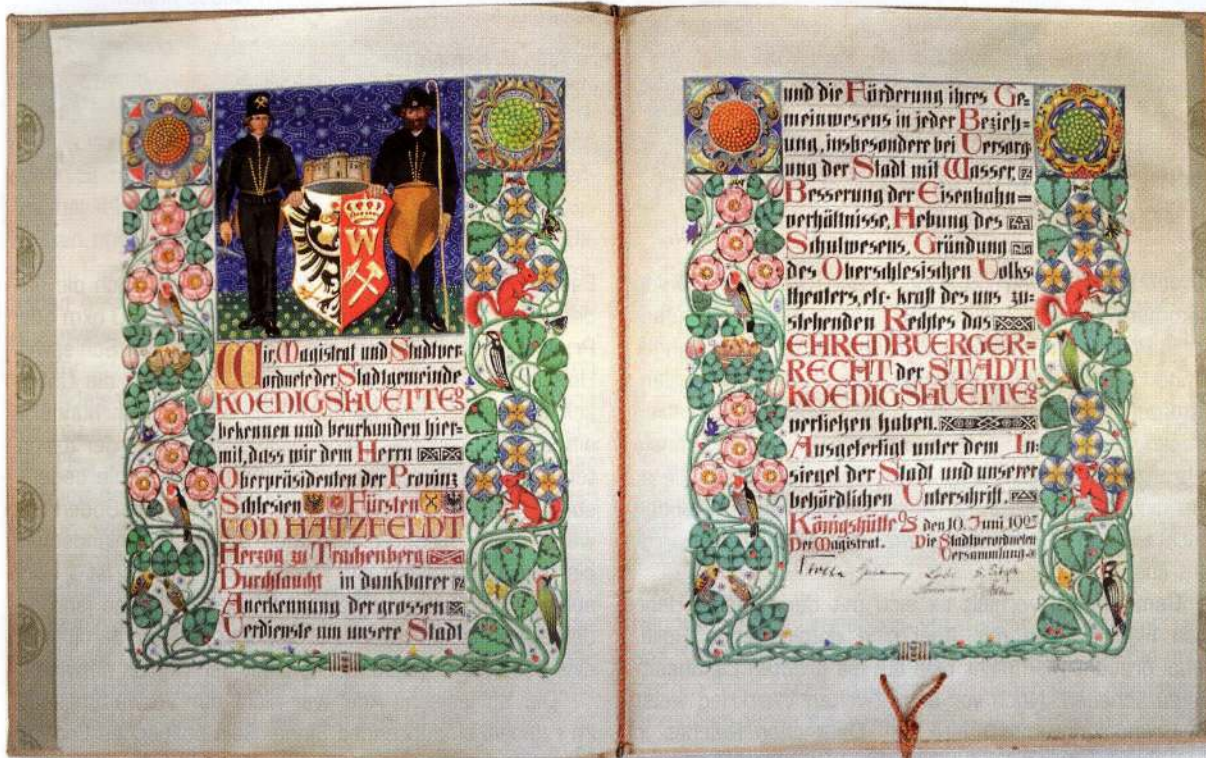 W
Wir, Magistrat und Stadtver
ordnete der Stadtgemeinde
KOENIGSHUETTE O/S
bekennen und beurkunden hier=
mit, dass wir dem Herrn
Oberpräsidenten der Provinz
Schlesien Fürsten
VON HATZFELDT
Herzog zu Trachenberg
Durchlaucht in dankbarer
Anerkennung der grossen
Verdienste um unsere Stadt
und die Förderung ihres Ge=
meinwesens in jeder Bezieh=
ung, insbesondere bei Versorg
ung der Stadt mit Wasser,
Besserung der Eisenbahn=
verhältnisse, Hebung des
Schulwesens, Gründung
des Oberschlesischen Volks=
theaters, etc. kraft des uns zu=
stehenden Rechtes das
EHRENBUERGER=
RECHT der STADT
KOENIGSHUETTE O/S
verliehen haben.
Ausgefertigt unter dem In=
siegel der Stadt und unserer
behördlichen Unterschrift.
Königshütte O/S den 10. Juni
Der Magistrat. Die Stadtverordneten
Versammlung